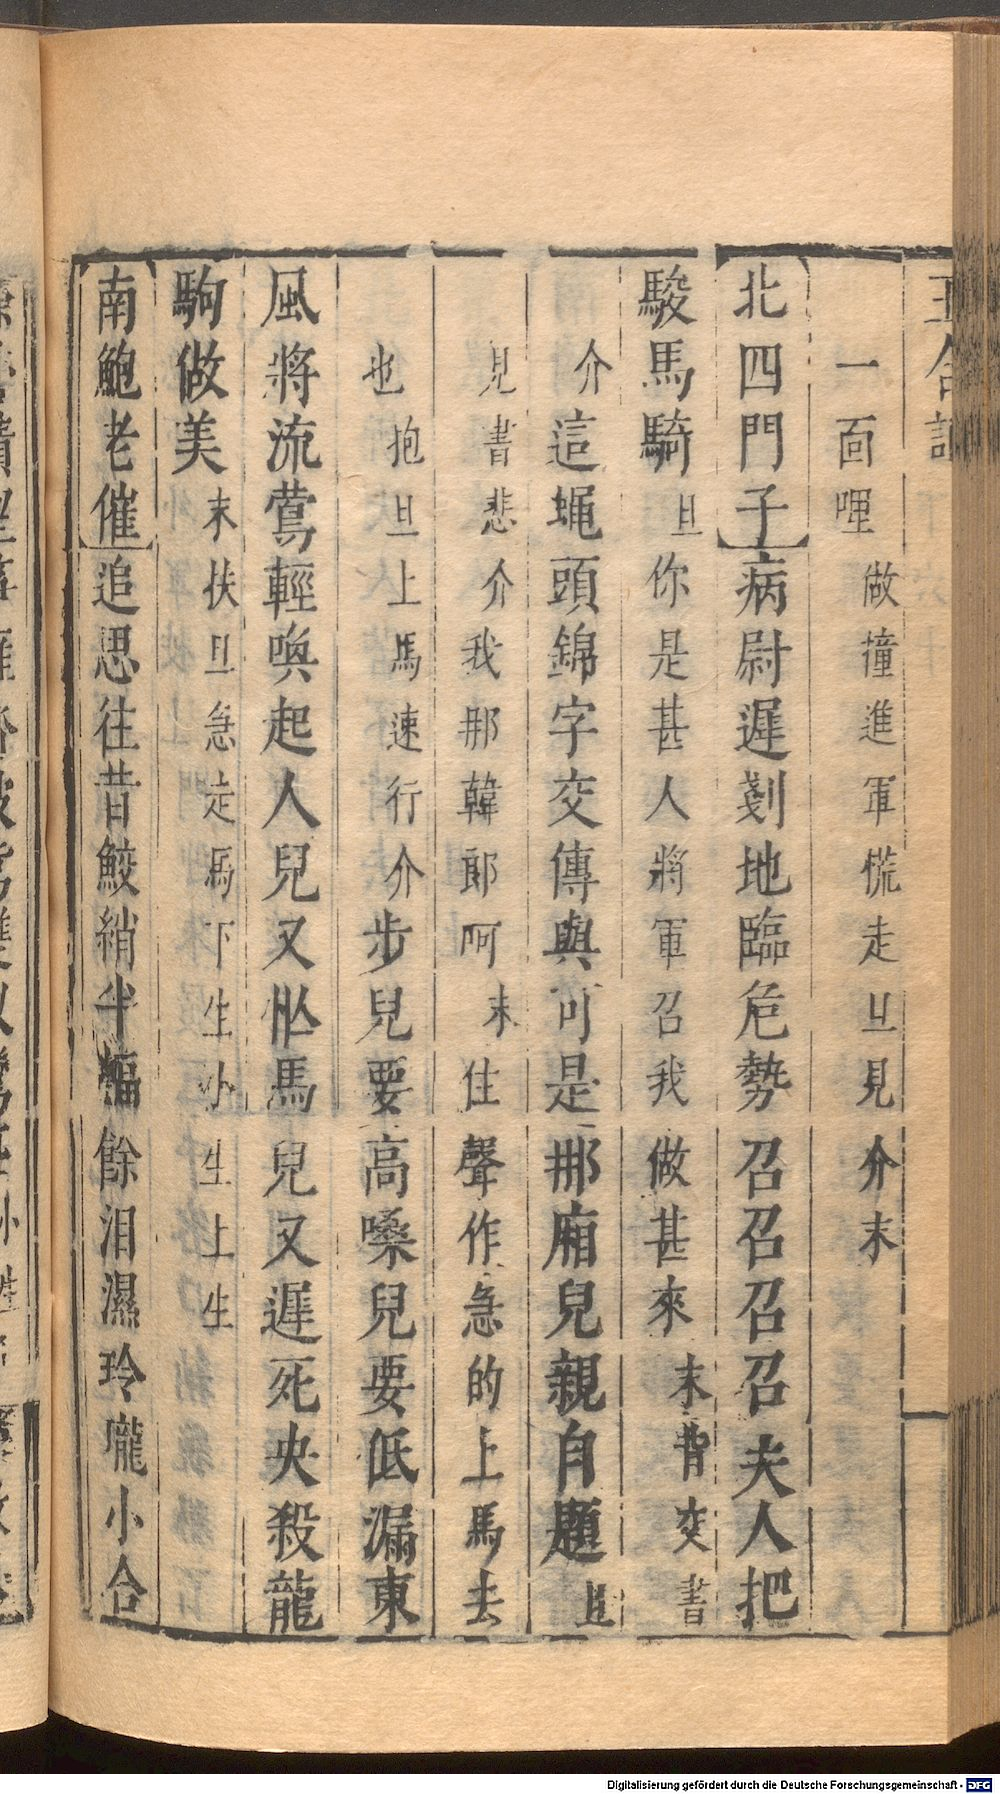 玉合記
一面哩做撞進軍慌走旦見介末
北四門子病尉遲剗地臨危勢召召召召夫人把
駿馬騎旦你是甚人將軍召我做甚來末背交書
介這蠅頭錦字交傳與可是那廂兒親自題旦
見書悲介我那韓郎呵末住聲作急的上馬去
也抱旦上馬速行介步兒要高嗓兒要低漏東
風將流鶯輕喚起人兒又㤕馬兒又遲死央殺龍
駒做美末扶旦急走馬下生小生上生
南鮑老催追思往昔鮫綃半幅餘泪濕玲瓏小合
Digitalisierung gefördert durch die Deutsche Forschungsgemeinschaft - DFG